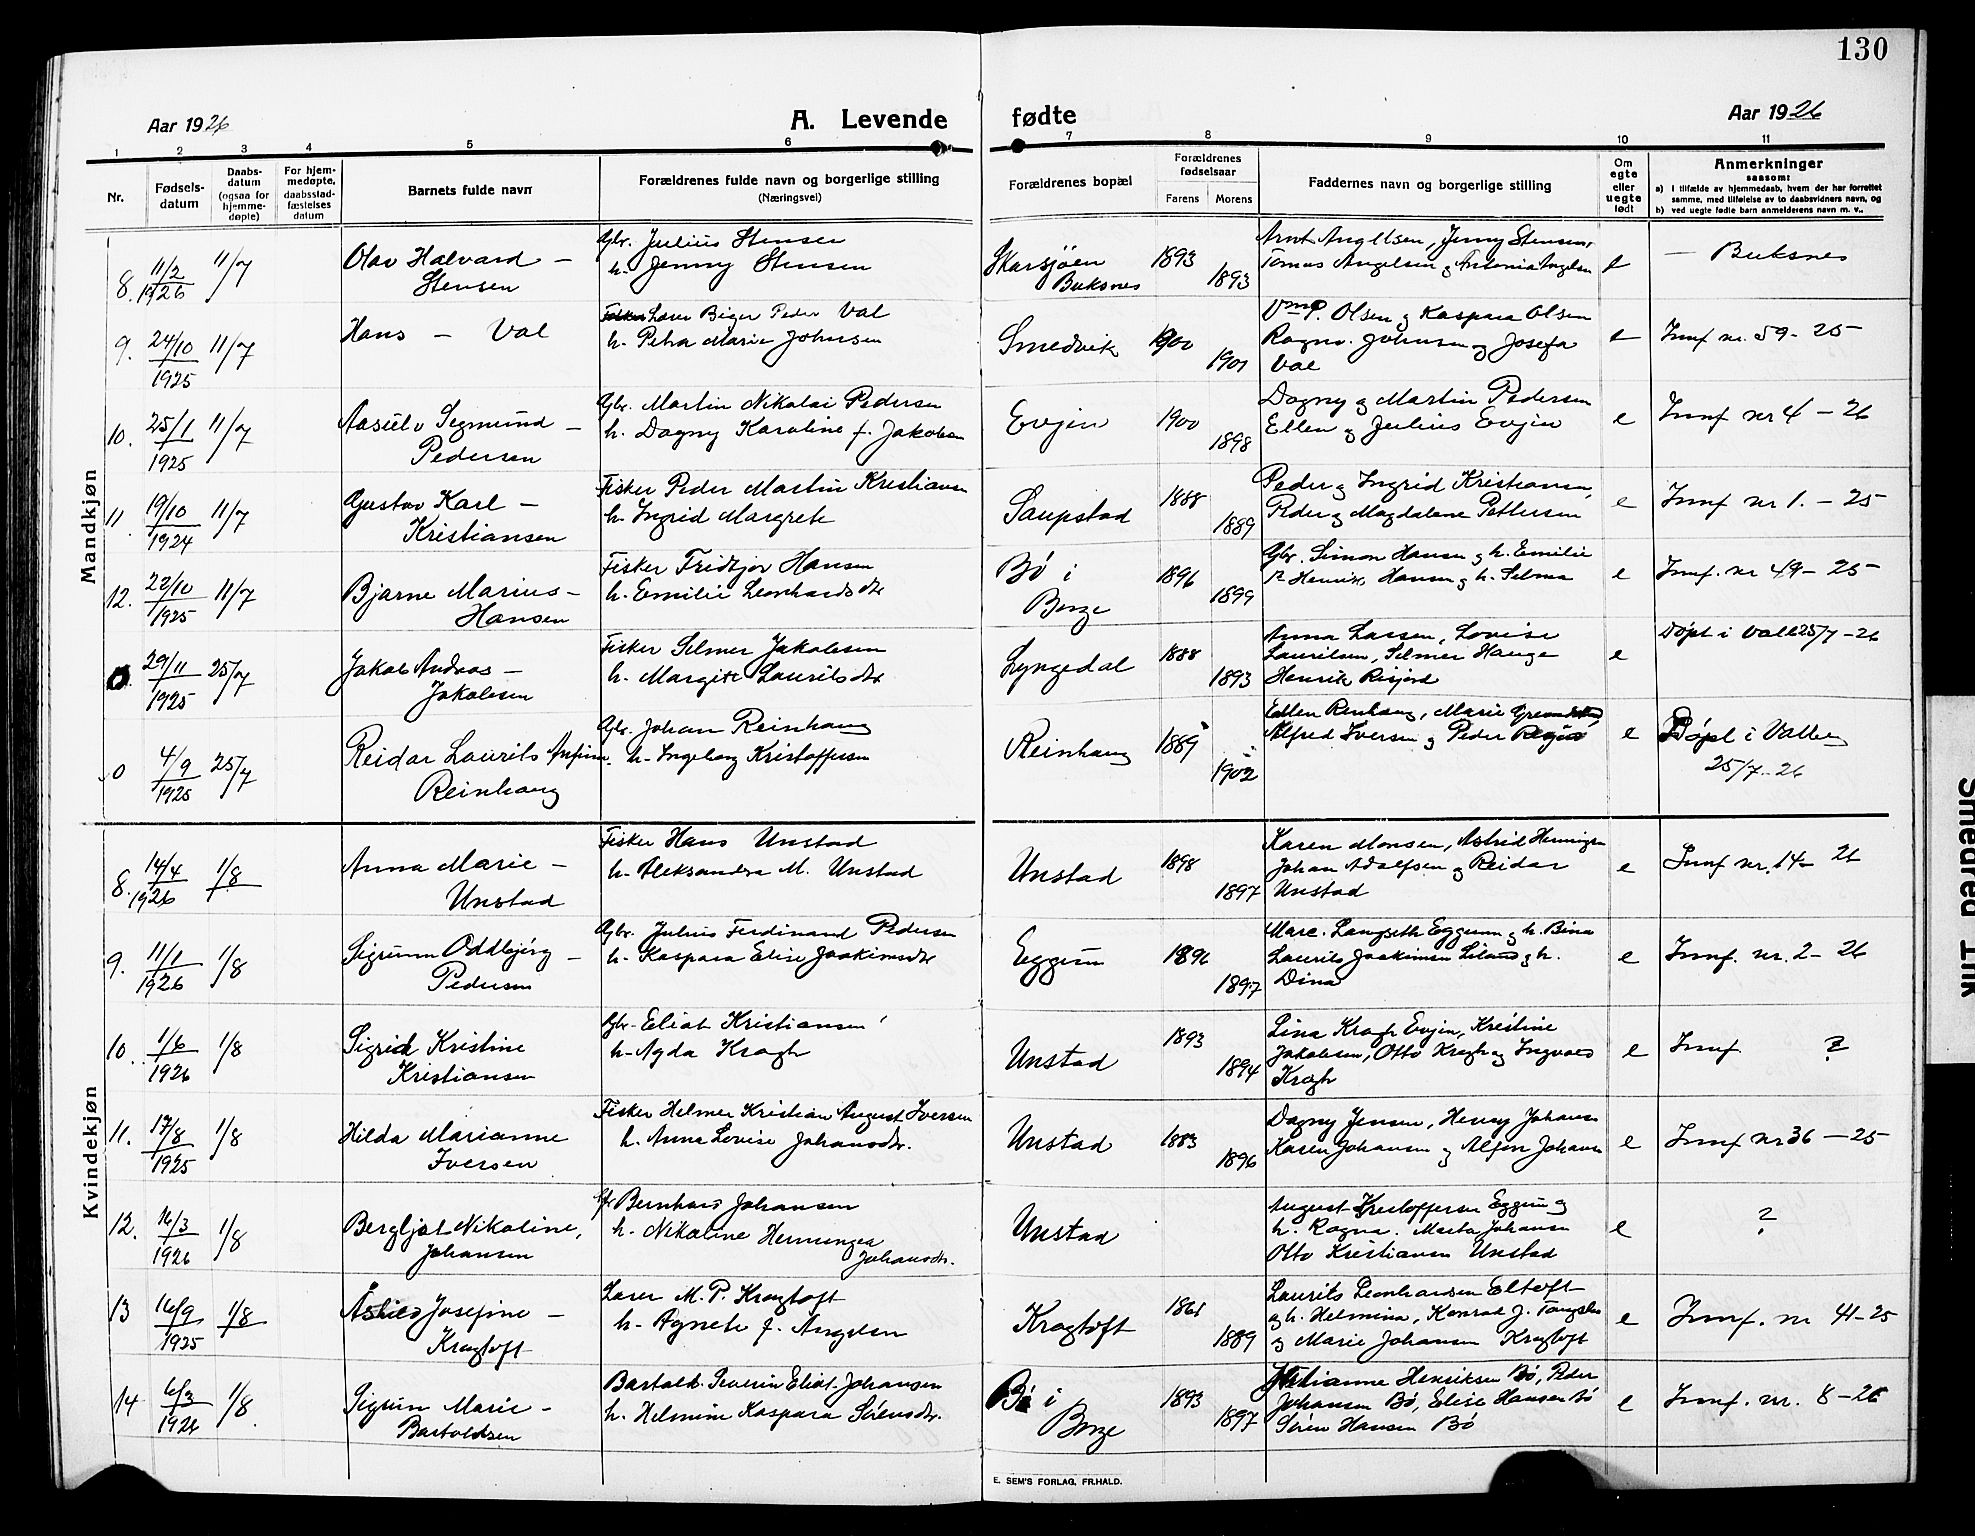 130
Aar 1926
A. Levende
fødte
Aar 1926
1 2 3 4 5 6 7 8 9 10 11
Nr.
Fødsels-
datum
Daabs-
datum
(ogsaa for
hjemme-
døpte)
For hjem-
medøpte,
daabsstad-
fæstelses
datum
Barnets fulde navn
Forældrenes fulde navn og borgerlige stilling
(Næringsvei)
Forældrenes bopæl
Forældrenes
fødselsaar
Farens Morens
Faddernes navn og borgerlige stilling
Om
egte
eller
uegte
født
Anmerkninger
saasom:
a) I tilfælde av hjemmedaab, hvem der har forrettet
samme, med tilføielse av to daabsvidners navn, og
b) ved uegte fødte barn anmelderens navn m. v..
Mandkjøn
8. 11/2 1926 11/7
Olav Halvard –
Stensen
Gbr. Julius Stensen
h. Jenny Stensen
Skarsjøen
Buksnes
1893
1893
Arnt Angelsen, Jenny Stensen,
Tomas Angelsen og Antonia Angelsen
e
– Buksnes
9. 24/10 1925 11/7
Hans – Val
Lærer Birger Peder Val
h. Petra Marie Johnsen
Smedvik
1900
1901
Olsen og Kaspara Olsen
Ragnv. Johnsen og Josefa
Val
e
Innf nr. 59 - 25
10. 25/1 1925 11/7
Aasulv Segmund –
Pedersen
Gbr. Martin Nikolai Pedersen
h. Dagny Karoline f. Jakobsen
Evjen
1900
1898
Dagny og Martin Pedersen
Ellen og Julius Evjen
e
Innf nr 4 – 26
11 19/10 1924 11/7
Gustav Karl –
Kristiansen
Fisker Peder Martin Kristiansen
h. Ingrid Margrete
Saupstad
1888
1889
Peder og Ingrid Kristiansen,
Peder og Magdalene Pettersen
e
Innf nr 1. – 25
12. 22/10 1925 11/7
Bjarne Marius –
Hansen
Fisker Fridtjov Hansen
h. Emilie Leonhardsdtr
Bø i
Borge
1896
1899
Gbr. Simon Hansen og h. Emilie
Henrik Hansen og h. Selma
e
Innf. nr 49 – 25
0. 29/11 1925 25/7
Jakob Andreas –
Jakobsen
Fisker Selmer Jakobsen
h. Margit Lauritsdtr
Lyngedal
1888
1893
Anna Larsen, Lovise
Lauritsen, Selmer Hauge
Henrik Risjord
e
Døpt i Valle 25/7 – 26
0 4/9 1925 25/7
Reidar Laurits Arfinn
Reinhaug
Gbr. Johan Reinhaug
h. Ingeborg Kristoffersen
Reinhaug
1889
1902
Ellen Reinhaug, Marie
Alfred Iversen og Peder
e
Døpt i Valle
25/7 - 26
Kvindekjøn
8. 14/4 1926 1/8
Anna Marie –
Unstad
Fisker Hans Unstad
h. Aleksandra M. Unstad
Unstad
1898
1897
Karen Monsen, Astrid Henningsen
Johan Adolfsen og Reidar
Unstad
e
Innf nr. 14 – 26
9. 11/1 1926 1/8
Sigrunn Oddbjørg –
Pedersen
Gbr. Julius Ferdinand Pedersen
h. Kaspara Elise Joakimsdtr
Eggum
1896
1897
Marc. Langseth Eggum og h. Bina
Laurits Joakimsen Liland og h.
Dina
e
Innf. nr. 2 – 26
10. 1/6 1926 1/8
Sigrid Kristine
Kristiansen
Gbr. Eliot Kristiansen
h. Agda Kragh
Unstad
1893
1894
Lina Kragh Evjen, Kristine
Jakobsen, Otto Kragh og Ingvald
Kragh
e
Innf ?
11. 17/8 1925 1/8
Hilda Marianne
Iversen
Fisker Helmer Kristian August Iversen
h. Anna Lovise Johansdtr.
Unstad
1883
1896
Dagny Jensen, Henry Johansen
Karen Johansen og Alfon Johansen
e
Innf nr 36 – 25
12. 16/3 1926 1/8
Bergljot Nikoline,
Johansen
Bernhard Johansen
h. Nikoline Henninge
Johansdtr.
Unstad
August Kristoffersen Eggum og
h. Ragna. Marta Johansen
Otto Kristiansen Unstad
e
?
13 16/9 1925 1/8
Josefine –
Kragtoft
Lærer M. P. Kragtoft
h. Agnete f. Angelsen
Kragtoft
1861
1889
Laurits Leonharsen Eltoft
og h. Helmina, Konrad J.
og Marie Johansen Kragtoft
e
Innf. nr 41 - 25
14 6/3 1926 1/8
Sigrun Marie –
Bartoldsen
Bartold. Severin Eliot. Johansen
h. Helmine Kaspara Sørensdtr.
Bø i
Borge
1893
1897
Henriksen Bø, Peder
Johansen Bø, Elise Hansen Bø
Søren Hansen Bø
e
Innf. nr. 8 – 26
E. SEM'S FORLAG, FR.HALD.
Smedred Trik